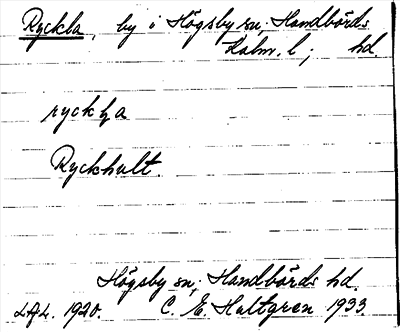 Ryckla, by i Högsby sn, Handbörds
Kalm. l; hd.
ryckḷa
Ryckhult.
Högsby sn, Handbörds hd.
1920. C. E. Hultgren 1933